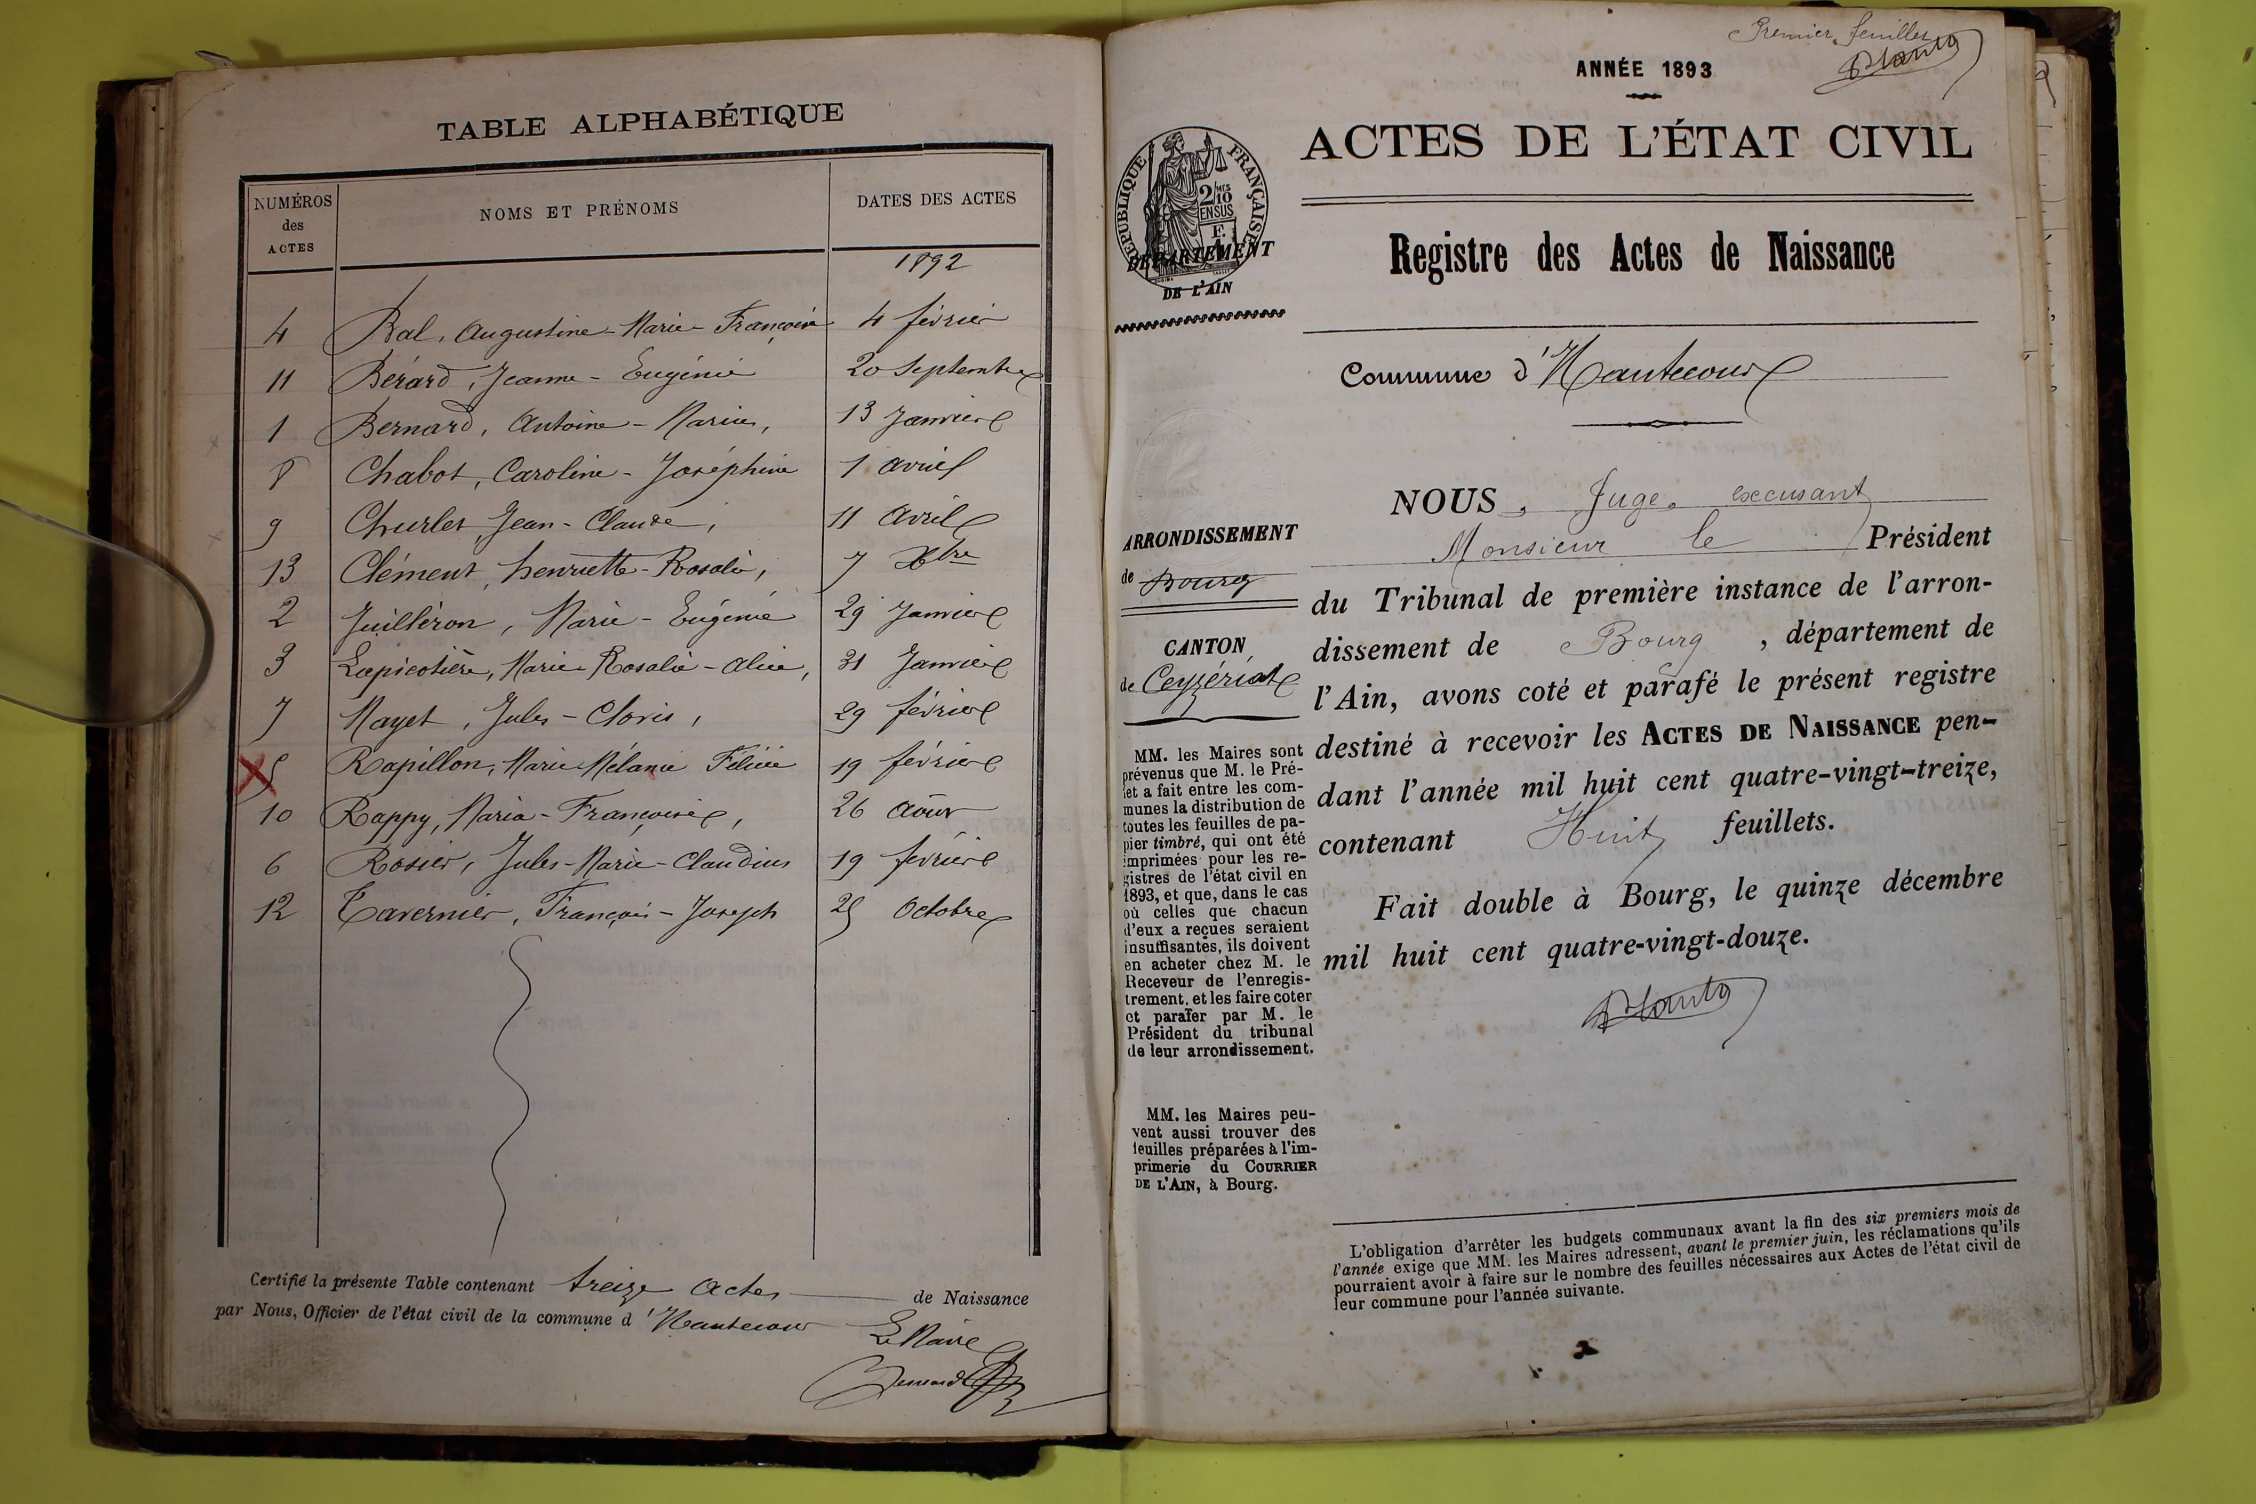 TABLE ALPHABÉTIQUE
NUMÉROS des ACTES NOMS ET PRÉNOMS DATES DES ACTES
1892
4 Bal, Augustine-Marie-Françoise 4 février
11 Bérard, Jeanne-Eugénie 20 Septembre
1 Bernard, Antoine-Marius, 13 Janvier
8 Chabot, Caroline-Joséphine 1 avril
9 Churlet, Jean-Claude, 11 avril
13 Clément, henriette-Rosalie, 7 Xbre
2 Juilléron, Marie-Eugénie 29 Janvier
3 Lapicotière, Marie-Rosalie-alice, 31 Janvier
7 Mayet, Jules-Clovis, 29 février
5 Rapillon, Marie Mélanie Félicie 19 février
10 Rappy, Maria-Françoise, 26 août
6 Rosier, Jules-Marie-Claudius 19 février
12 Tavernier, François-Joseph 25 Octobre
Certifié la présente Table contenant treize actes de Naissance
par Nous, Officier de l'état civil de la commune d'Hautecour
Le Maire
Bernard
Premier feuillet
ANNÉE 1893
ACTES DE L'ÉTAT CIVIL
RÉPUBLIQUE FRANÇAISE
2/10MES
EN SUS
F.
DÉPARTEMENT
DE L'AIN
Registre des Actes de Naissance
Commune d'Hautecour
ARRONDISSEMENT
de Bourg
CANTON
de Ceyzériat
MM. les Maires sont
prévenus que M. le Pré-
fet a fait entre les com-
munes la distribution de
toutes les feuilles de pa-
pier timbré, qui ont été
imprimées pour les re-
gistres de l'état civil en
1893, et que, dans le cas
où celles que chacun
d'eux a reçues seraient
insuffisantes, ils doivent
en acheter chez M. le
Receveur de l'enregis-
trement, et les faire coter
et parafer par M. le
Président du tribunal
de leur arrondissement.
MM. les Maires peu-
vent aussi trouver des
feuilles préparées à l'im-
primerie du COURRIER
DE L'AIN, à Bourg.
NOUS, Juge, excusant
Monsieur le Président
du Tribunal de première instance de l'arron-
dissement de Bourg, département de
l'Ain, avons coté et parafé le présent registre
destiné à recevoir les ACTES DE NAISSANCE pen-
dant l'année mil huit cent quatre-vingt-treize,
contenant Huit feuillets.
Fait double à Bourg, le quinze décembre
mil huit cent quatre-vingt-douze.
L'obligation d'arrêter les budgets communaux avant la fin des six premiers mois de
l'année exige que MM. les Maires adressent, avant le premier juin, les réclamations qu'ils
pourraient avoir à faire sur le nombre des feuilles nécessaires aux Actes de l'état civil de
leur commune pour l'année suivante.